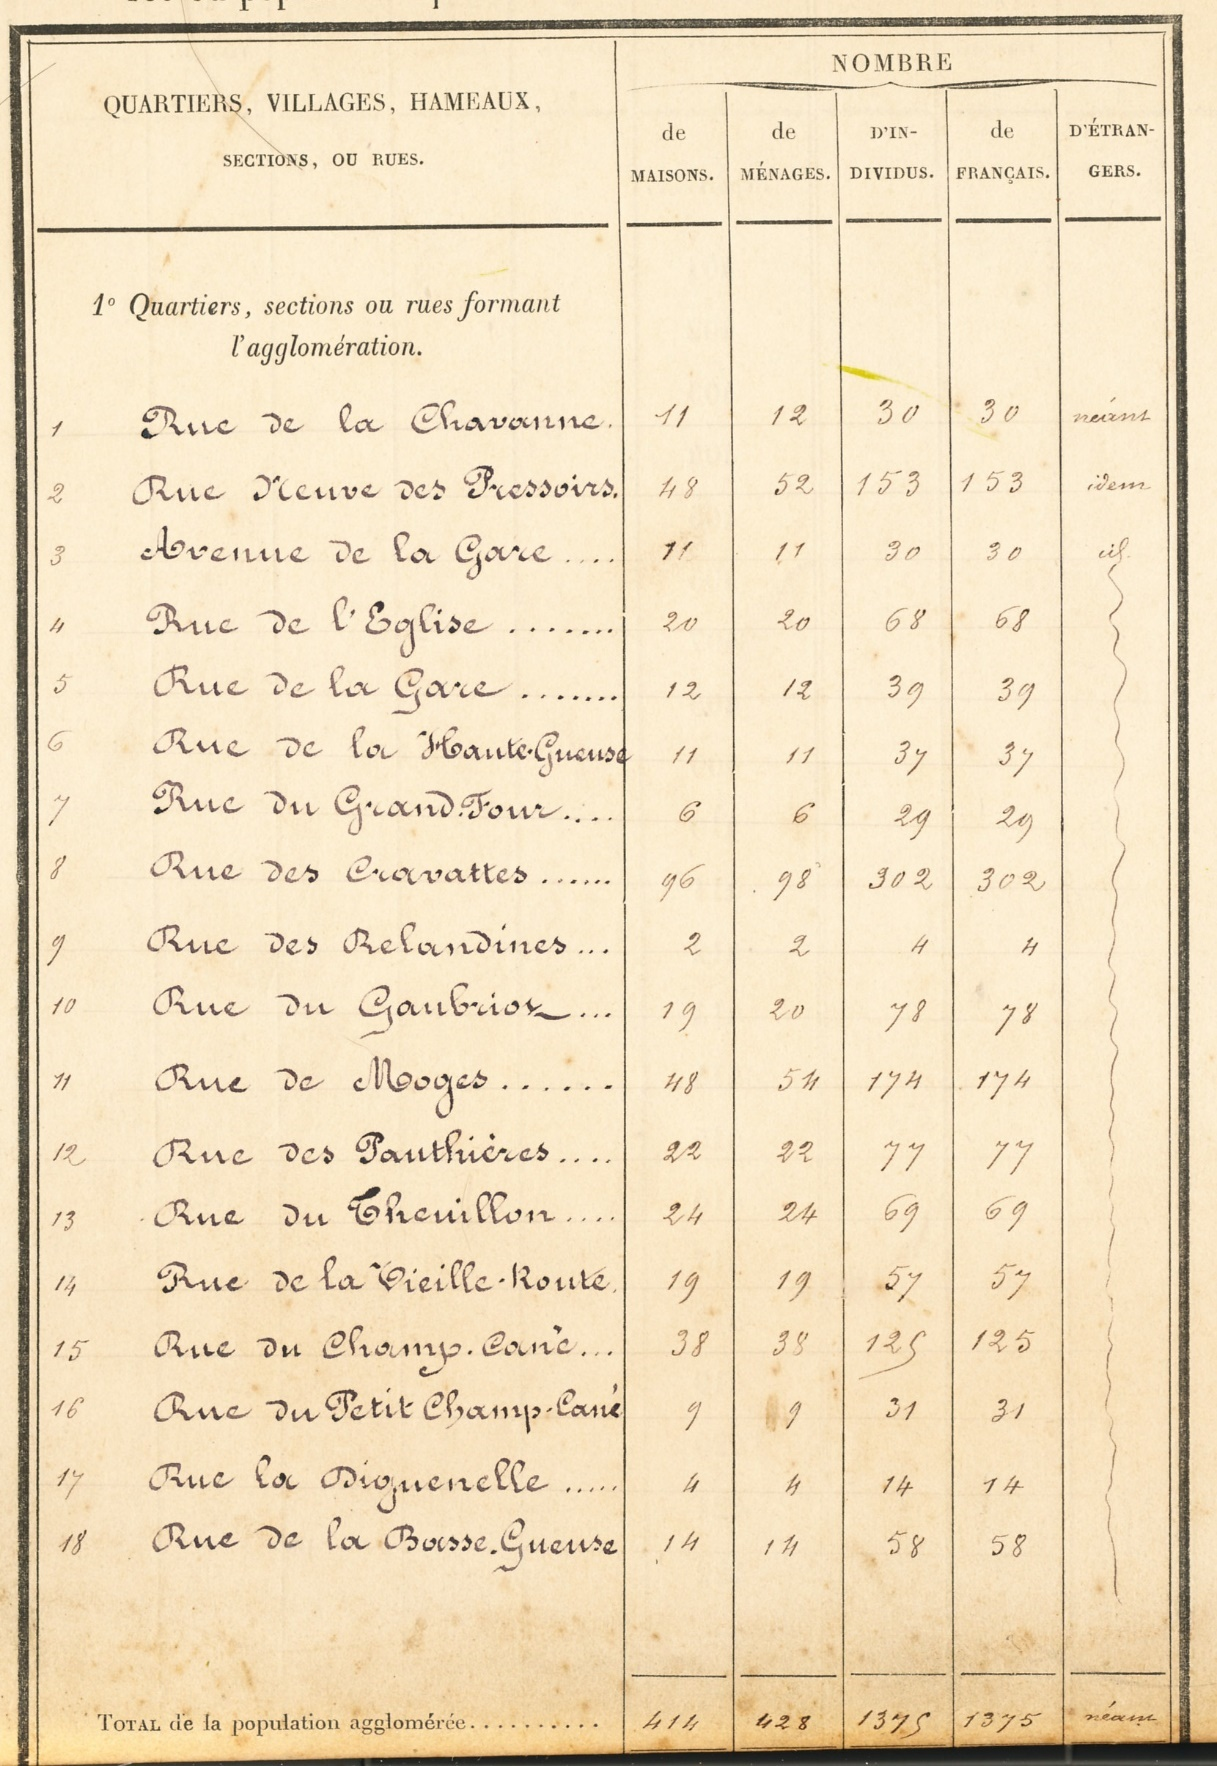 NOMBRE
QUARTIERS, VILLAGES, HAMEAUX,
SECTIONS, OU RUES.
de MAISONS. de MÉNAGES. D'IN-DIVIDUS. de FRANÇAIS. D'ÉTRAN-GERS.
1° Quartiers, sections ou rues formant
l'agglomération.
1 Rue de la Chavanne. 11 12 30 30 néant
2 Rue Neuve des Pressoirs. 48 52 153 153 idem
3 Avenue de la Gare .... 11 11 30 30 id.
4 Rue de l'Eglise ....... 20 20 68 68
5 Rue de la Gare ....... 12 12 39 39
6 Rue de la Haute-Gueuse 11 11 37 37
7 Rue du Grand-Four .... 6 6 29 29
8 Rue des Cravattes ...... 96 98 302 302
9 Rue des Relandines ... 2 2 4 4
10 Rue du Gaubrioz ... 19 20 78 78
11 Rue de Moges ...... 48 54 174 174
12 Rue des Panthières .... 22 22 77 77
13 Rue du Theuillon .... 24 24 69 69
14 Rue de la Vieille-Route. 19 19 57 57
15 Rue du Champ-Cané ... 38 38 125 125
16 Rue du Petit Champ-Cané 9 9 31 31
17 Rue la Diguenelle ..... 4 4 14 14
18 Rue de la Basse-Gueuse 14 14 58 58
TOTAL de la population agglomérée.......... 414 428 1375 1375 néant